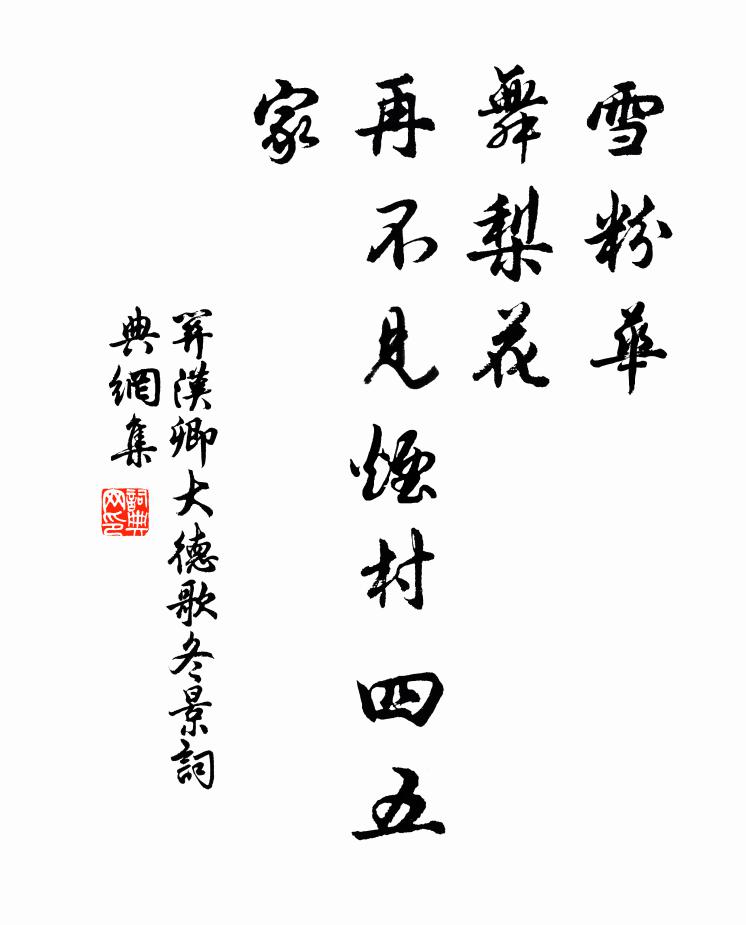 雪粉華
舞梨花
再不見煙村四五
家
关漢卿大德歌冬景詞
典網集
詞典
网印